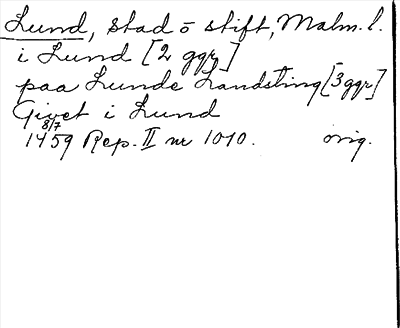 Lund, stad ō stift, Malm. l.
i Lund [2 ggr]
paa Lunde Landsting [3 ggr]
Givet i Lund
8/7
1459 Rep. II nr 1010. orig.